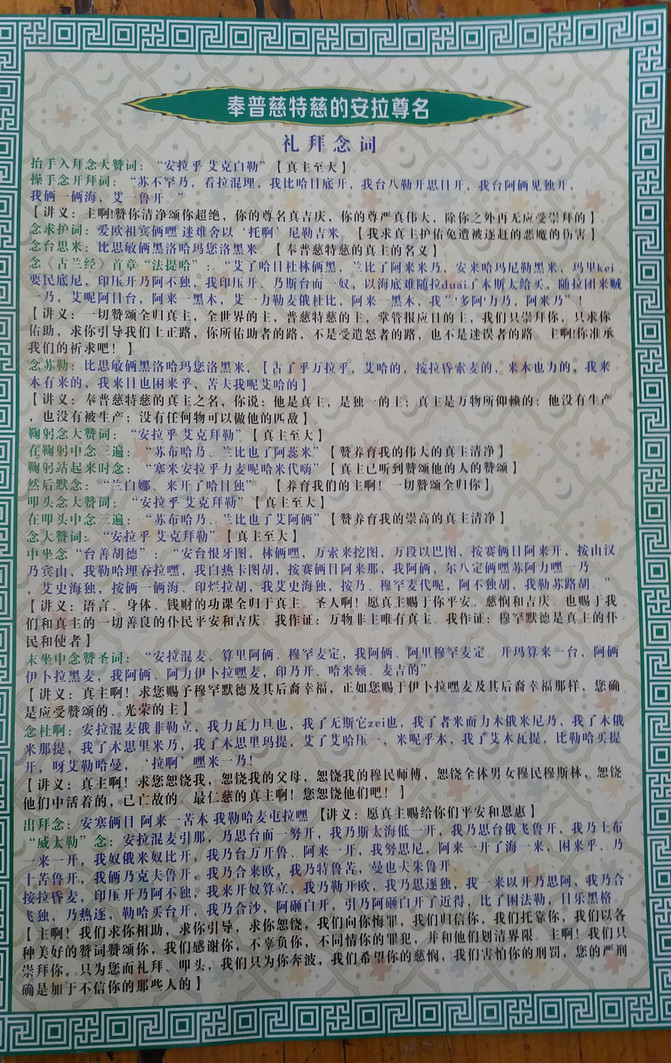 奉普慈特慈的安拉尊名
礼拜念词
抬手入拜念大赞词：“安拉乎艾克白勒”【真主至大】
操手念开拜词：“苏不罕乃，看拉混埋，我比哈目底开，我台八勒开思目开，我台阿俩见独开，
我俩一俩海，艾一鲁开。”
【讲义：主啊!赞你清净颂你超绝，你的尊名真吉庆，你的尊严真伟大，除你之外再无应受崇拜的】
念求护词：爱欧祖宾俩嘿 迷难舍以“托啊”尼勒吉米。【我求真主护佑免遭被逐赶的恶魔的伤害】
念台思米：比思敏俩黑洛哈玛您洛黑米。【奉普慈特慈的真主的名义】
念《古兰经》首章“法提哈”：“艾了哈目杜林俩黑，兰比了阿来米乃，安来哈玛尼勒黑米，玛里kei
要民底尼，印压开乃阿不独，我印压开，乃斯台而一奴。以海底难随拉duai了木斯太给买，随拉团来贼
一乃，艾呢阿目台，阿来一黑木，艾一力勒麦俄杜比，阿来一黑木，我
【讲义：一切赞颂全归真主，全世界的主，普慈特慈的主，掌管报应日的主，我们只崇拜你，只求你
佑助，求你引导我们上正路，你所佑助者的路，不是受谴怒者的路，也不是迷误者的路。主啊!你准承
我们的祈求吧！】
念苏勒：比思敏俩黑洛哈玛您洛黑米，【古了乎万拉乎，艾哈的，按拉昏索麦的，来木也力的，我来
木有来的，我来目也困来乎，苦夫我呢艾哈的】
【讲义：奉普慈特慈的真主之名，你说：他是真主，是独一的主；真主是万物所仰赖的；他没有生产
，也没有被生产；没有任何物可以做他的匹敌】
鞠躬念大赞词：“安拉乎艾克拜勒”【真主至大】
在鞠躬中念三遍：“苏布哈乃、兰比也了阿蕊米”【赞养育我的伟大的真主清净】
鞠躬站起来时念：“塞米安拉乎力麦呢哈米代嗨”【真主已听到赞颂他的人的赞颂】
然后默念：“兰白娜、来开了哈目独”。【养育我们的主啊！一切赞颂全归你】
叩头念大赞词：“安拉乎艾克拜勒”【真主至大】
在叩头中念三遍：“苏布哈乃、兰比也了艾阿俩”【赞养育我的崇高的真主清净】
念大赞词：“安拉乎艾克拜勒”【真主至大】
中坐念“台善胡德”：“安台恨牙图，林俩嘿，万索来挖图，万段以巴图，按赛俩目阿来开，按由汉
乃宾由，我勒哈埋吞拉嘿，我白热卡图胡，按赛俩目阿来那，我阿俩，尔八定俩嘿苏阿力嘿一乃
，艾史海独，按俩一俩海，印烂拉胡，我艾史海独，按乃、穆罕麦代呢，阿不独胡，我勒苏路胡。”
【讲义：语言、身体、钱财的功课全归于真主。圣人啊！愿真主赐于你平安、慈悯和吉庆。也赐于我
们和真主的一切善良的仆民平安和吉庆。我作证：万物非主唯有真主。我作证：穆罕默德是真主的仆
民和使者】
末坐中念赞圣词：“安拉混麦、算里阿俩、穆罕麦定，我阿俩、阿里穆罕麦定、开玛算来一台，阿俩
伊卜拉黑麦，我阿俩、阿力伊卜拉嘿麦，印乃开、哈米顿、麦吉的”
【讲义：真主啊！求您赐予穆罕默德及其后裔幸福，正如您赐于伊卜拉嘿麦及其后裔幸福那样，您确
是应受赞颂的、光荣的主】
念杜啊：安拉混麦俄非勒立，我力瓦力旦也，我了无斯它zei也，我了者米而力木俄米尼乃，我了木俄
米那提，我了木思里米乃，我了木思里玛提，艾了艾哈压一，米呢乎木，我了艾木瓦提，比勒哈买提
开，呀艾勒哈曼，“拉啊”嘿米一乃!
【讲义：真主啊！求您恕饶我，恕饶我的父母，恕饶我的穆民师傅，恕饶全体男女穆民穆斯林，恕饶
他们中活着的，已亡故的。最仁慈的真主啊！您恕饶他们吧！】
出拜念：安塞俩目 阿来一苦木 我勒哈麦屯拉嘿【讲义：愿真主赐给你们平安和恩惠】
“威太勒”念：安拉混麦引那，乃思台而一努开，我乃斯太海低一开，我乃思台俄飞鲁开，我乃土布
一来一开，我奴俄米奴比开，我乃台万开鲁、阿来一开，我努思尼，阿来一开了海一来，困来乎、乃
十苦鲁开，我俩乃克夫鲁开。我乃合来欧，我乃特鲁苦，曼也夫朱鲁开
按拉昏麦，印压开乃阿不独，我来开奴算立，我乃勒开欧，我乃思逐独，我一来以开乃思阿，我乃合
飞独，乃热逐，勒哈买台开，我乃合沙，阿砸白开，引乃阿砸白开了近得，比了困法勒，目乐黑格。
【主啊！我们求你相助，求你引导，求你恕饶，我们向你悔罪，我们归信你，我们托靠你，我们以各
种美好的赞词赞颂你，我们感谢你，不辜负你，不同情你的罪犯，并和他们划清界限。主啊!我们只
崇拜你，只为您而礼拜、叩头，我们只为你奔波，我们希望你的慈悯，我们害怕你的刑罚，您的严刑
确是加于不信你的那些人的】